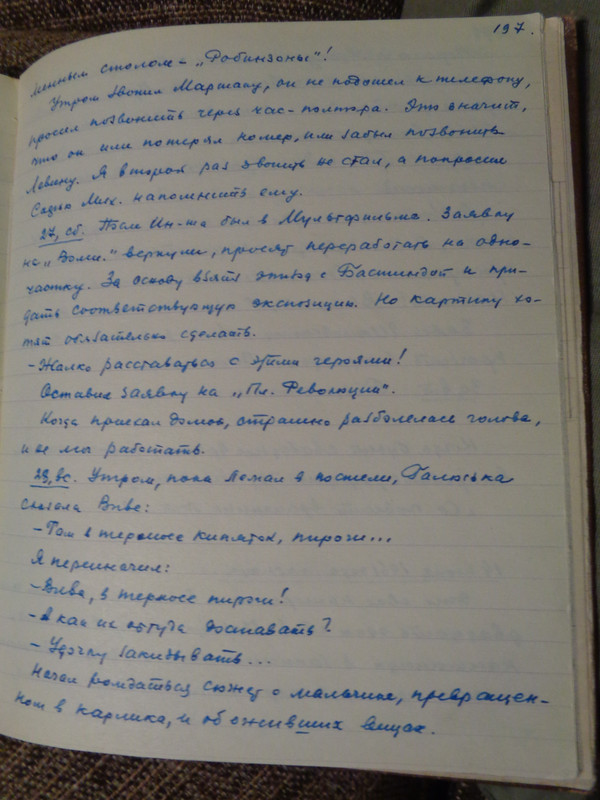 197.
менным столом – „Робинзоны"!
Утром звонил Маршаку, он не подошел к телефону,
просил позвонить через час-полтора. Это значит,
что он или потерял номер, или забыл позвонить
Левину. Я второй раз звонить не стал, а попросил
Софью Мих. напомнить ему.
27, сб. После Ин-та был в Мультфильме. Заявку
на „Волш." вернули, просят переработать на одно-
частку. За основу взять эпизод с Бастиндой и при-
дать соответствующую экспозицию. Но картину хо-
тят обязательно сделать.
– Жалко расставаться с этими героями!
Оставил заявку на „Пл. Революции".
Когда приехал домой, страшно разболелась голова,
и не мог работать.
28, вс. Утром, пока лежал в постели, Галюська
сказала Виве:
– Там в термосе кипяток, пироги...
Я переиначил:
– Вива, в термосе пироги!
– А как их оттуда доставать?
– Удочку закидывать...
Начал рождаться сюжет о мальчике, превращен-
ном в карлика, и об оживших вещах.